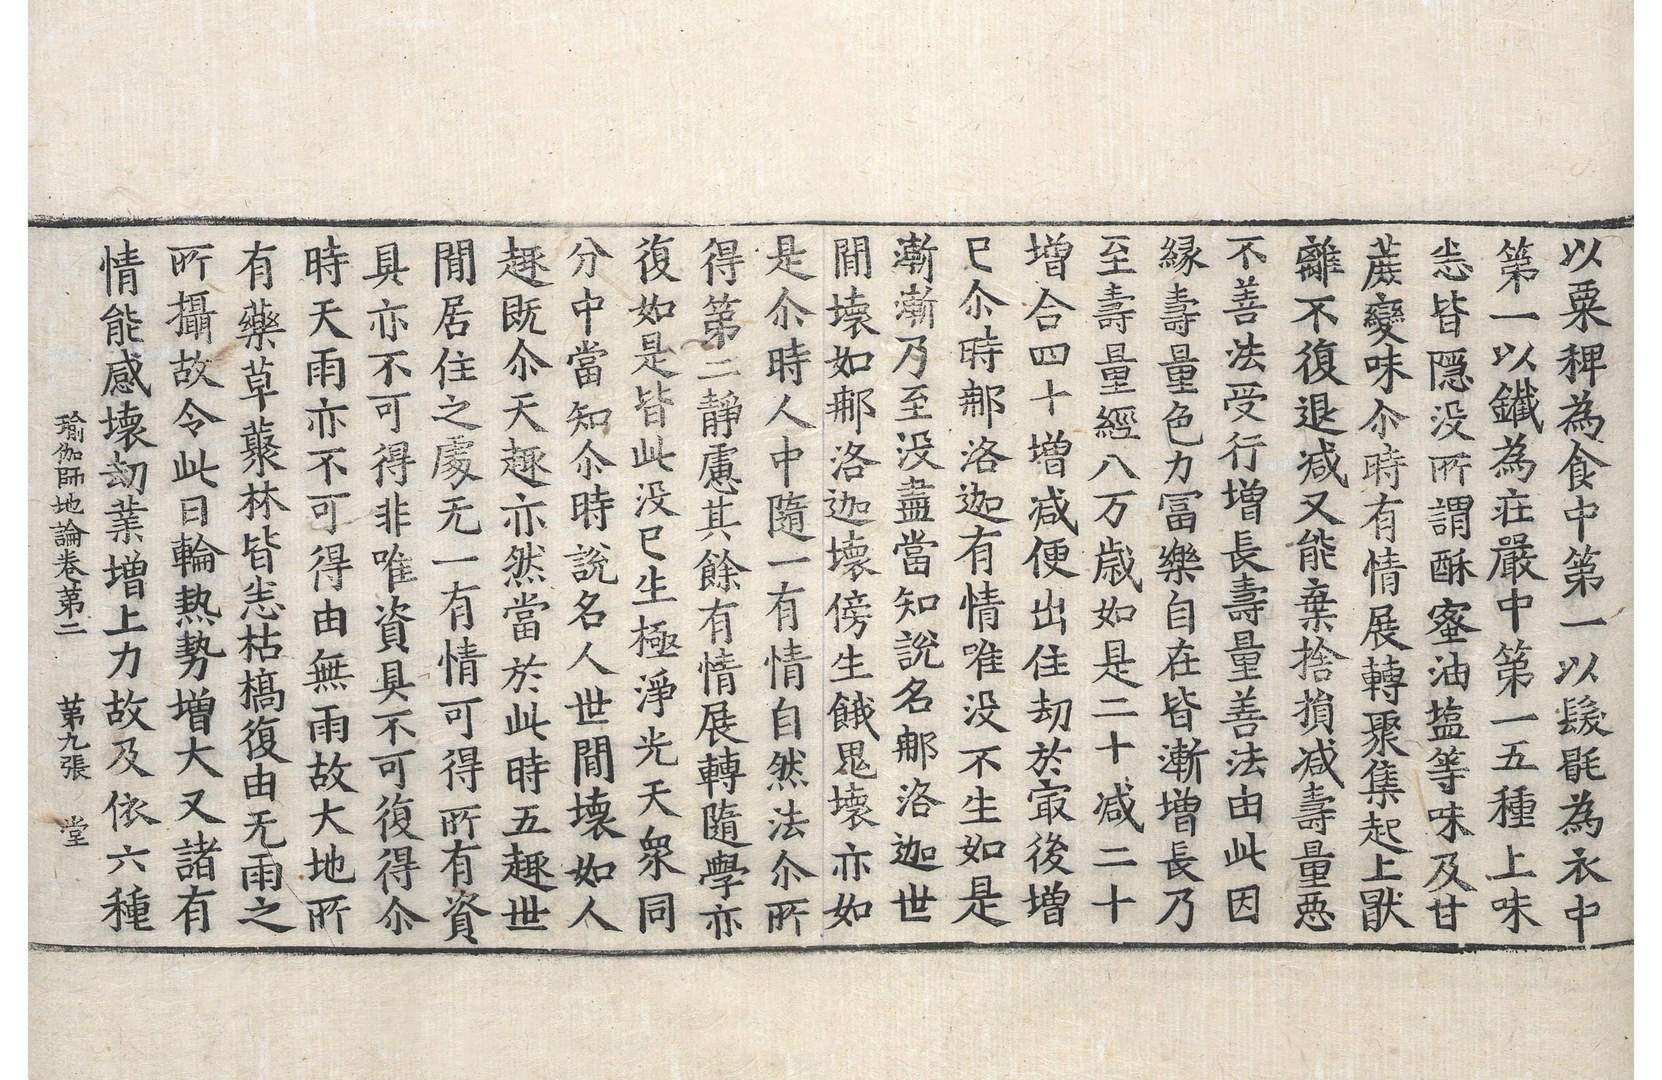 以粟稗為食中第一以髮毼為衣中
第一以鐵為庄嚴中第一五種上味
悉皆隱没所謂酥蜜油塩等味及甘
蔗變味尒時有情展轉聚集起上猒
離不復退减又能棄捨損减壽量惡
不善法受行增長壽量善法由此因
緣壽量色力冨樂自在皆漸增長乃
至壽量經八万歳如是二十减二十
增合四十增减便出住劫於㝡後增
已尒時那洛迦有情唯没不生如是
漸漸乃至没盡當知說名那洛迦世
間壞如那洛迦壞傍生餓鬼壞亦如
是尒時人中隨一有情自然法尒所
得第二靜慮其餘有情展轉隨學亦
復如是皆此没已生極淨光天衆同
分中當知尒時說名人世間壞如人
趣既尒天趣亦然當於此時五趣世
間居住之處无一有情可得所有資
具亦不可得非唯資具不可復得尒
時天雨亦不可得由無雨故大地所
有藥草藂林皆悉枯槁復由无雨之
所攝故令此日輪熱勢增大又諸有
情能感壞劫業增上力故及依六種
瑜伽師地論卷第二　第九張　堂